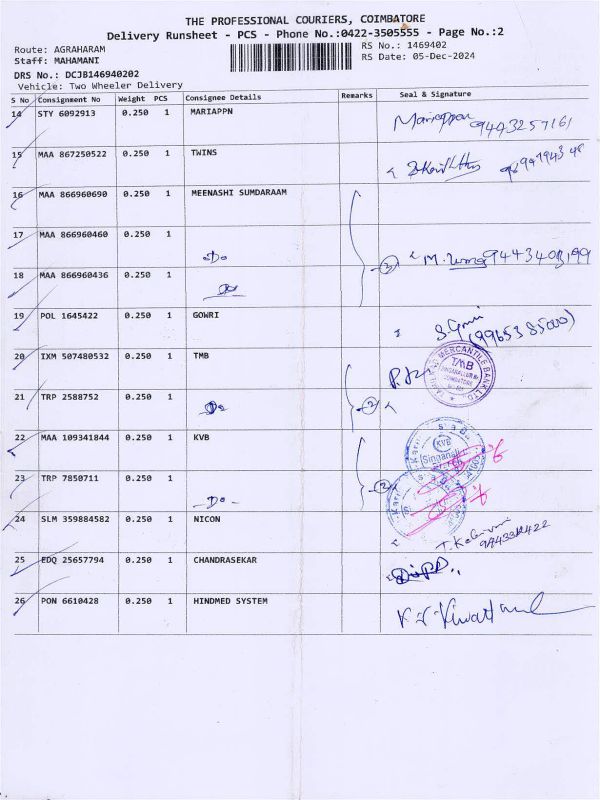 THE PROFESSIONAL COURIERS, COIMBATORE
Delivery Runsheet - PCS - Phone No.:0422-3505555 - Page No.:2
Route: AGRAHARAM
RS No.: 1469402
Staff: MAHAMANI
RS Date: 05-Dec-2024
DRS No.: DCJB146940202
Vehicle: Two Wheeler Delivery
S No Consignment No Weight PCS Consignee Details Remarks Seal & Signature
14 STY 6092913 0.250 1 MARIAPPN Mariappan 9443257161
15 MAA 867250522 0.250 1 TWINS
16 MAA 866960690 0.250 1 MEENASHI SUMDARAAM
17 MAA 866960460 0.250 1 -Do-
18 MAA 866960436 0.250 1 -Do-
19 POL 1645422 0.250 1 GOWRI (9965385000)
20 IXM 507480532 0.250 1 TMB TMB
21 TRP 2588752 0.250 1 -Do-
22 MAA 109341844 0.250 1 KVB KVB
23 TRP 7850711 0.250 1 -Do-
24 SLM 359884582 0.250 1 NICON
25 EDQ 25657794 0.250 1 CHANDRASEKAR
26 PON 6610428 0.250 1 HINDMED SYSTEM